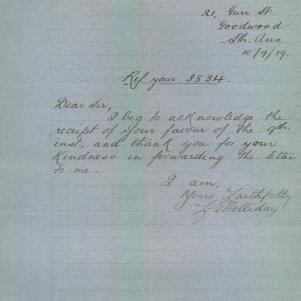 21, Gurr St.
Goodwood
Sth. Aus.
10/9/19.
Ref your 2834.
Dear Sir,
I beg to acknowledge the
receipt of your favour of the 9th.
inst. and thank you for your
Kindness in forwarding the letter
to me.
I am,
Yours Faithfully
Holliday